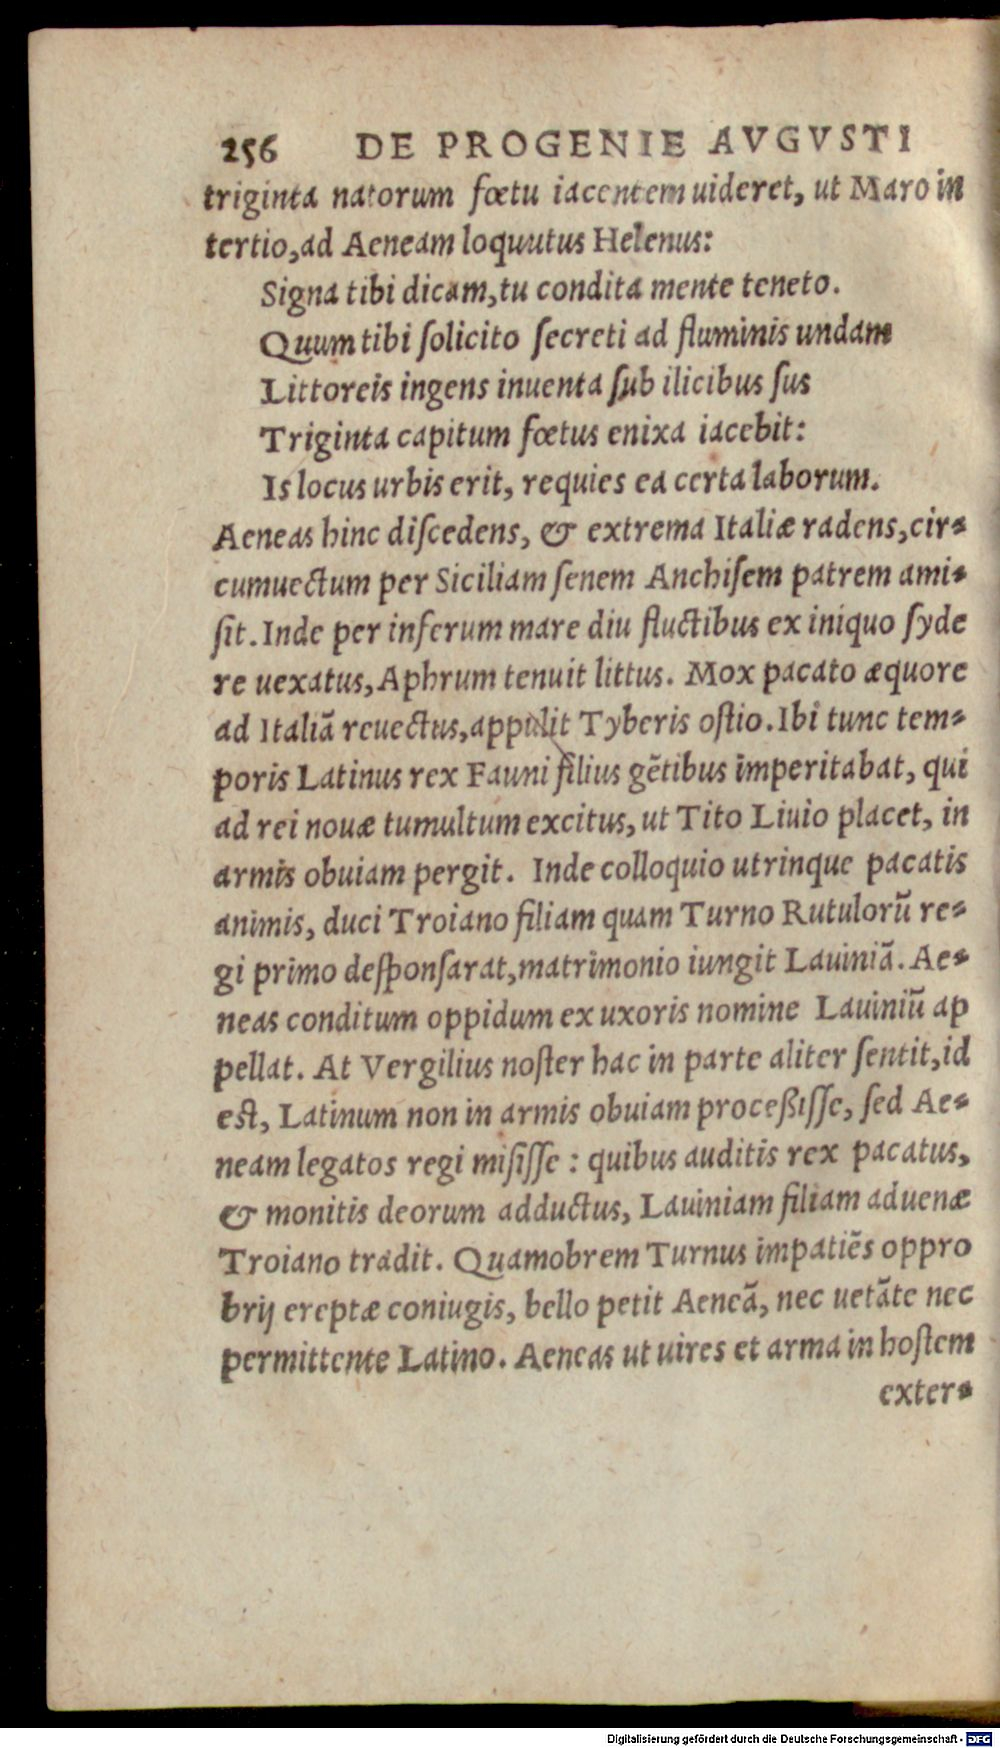 256 DE PROGENIE AVGVSTI
triginta natorum fœtu iacentem uideret, ut Maro in
tertio, ad Aeneam loquutus Helenus:
Signa tibi dicam, tu condita mente teneto.
Quum tibi ſolicito ſecreti ad fluminis undam
Littoreis ingens inuenta ſub ilicibus ſus
Triginta capitum fœtus enixa iacebit:
Is locus urbis erit, requies ea certa laborum.
Aeneas hinc diſcedens, & extrema Italiæ radens, cir-
cumuectum per Siciliam ſenem Anchiſem patrem ami-
ſit. Inde per inferum mare diu fluctibus ex iniquo ſyde
re uexatus, Aphrum tenuit littus. Mox pacato æquore
ad Italiã reuectus, appulit Tyberis oſtio. Ibi tunc tem-
poris Latinus rex Fauni filius gẽtibus imperitabat, qui
ad rei nouæ tumultum excitus, ut Tito Liuio placet, in
armis obuiam pergit. Inde colloquio utrinque pacatis
animis, duci Troiano filiam quam Turno Rutulorũ re-
gi primo deſponſarat, matrimonio iungit Lauiniã. Ae-
neas conditum oppidum ex uxoris nomine Lauiniũ ap
pellat. At Vergilius noſter hac in parte aliter ſentit, id
eſt, Latinum non in armis obuiam proceßiſſe, ſed Ae-
neam legatos regi miſiſſe : quibus auditis rex pacatus,
& monitis deorum adductus, Lauiniam filiam aduenæ
Troiano tradit. Quamobrem Turnus impatiẽs oppro
brij ereptæ coniugis, bello petit Aeneã, nec uetãte nec
permittente Latino. Aeneas ut uires et arma in hoſtem
exter-
Digitalisierung gefördert durch die Deutsche Forschungsgemeinschaft - DFG